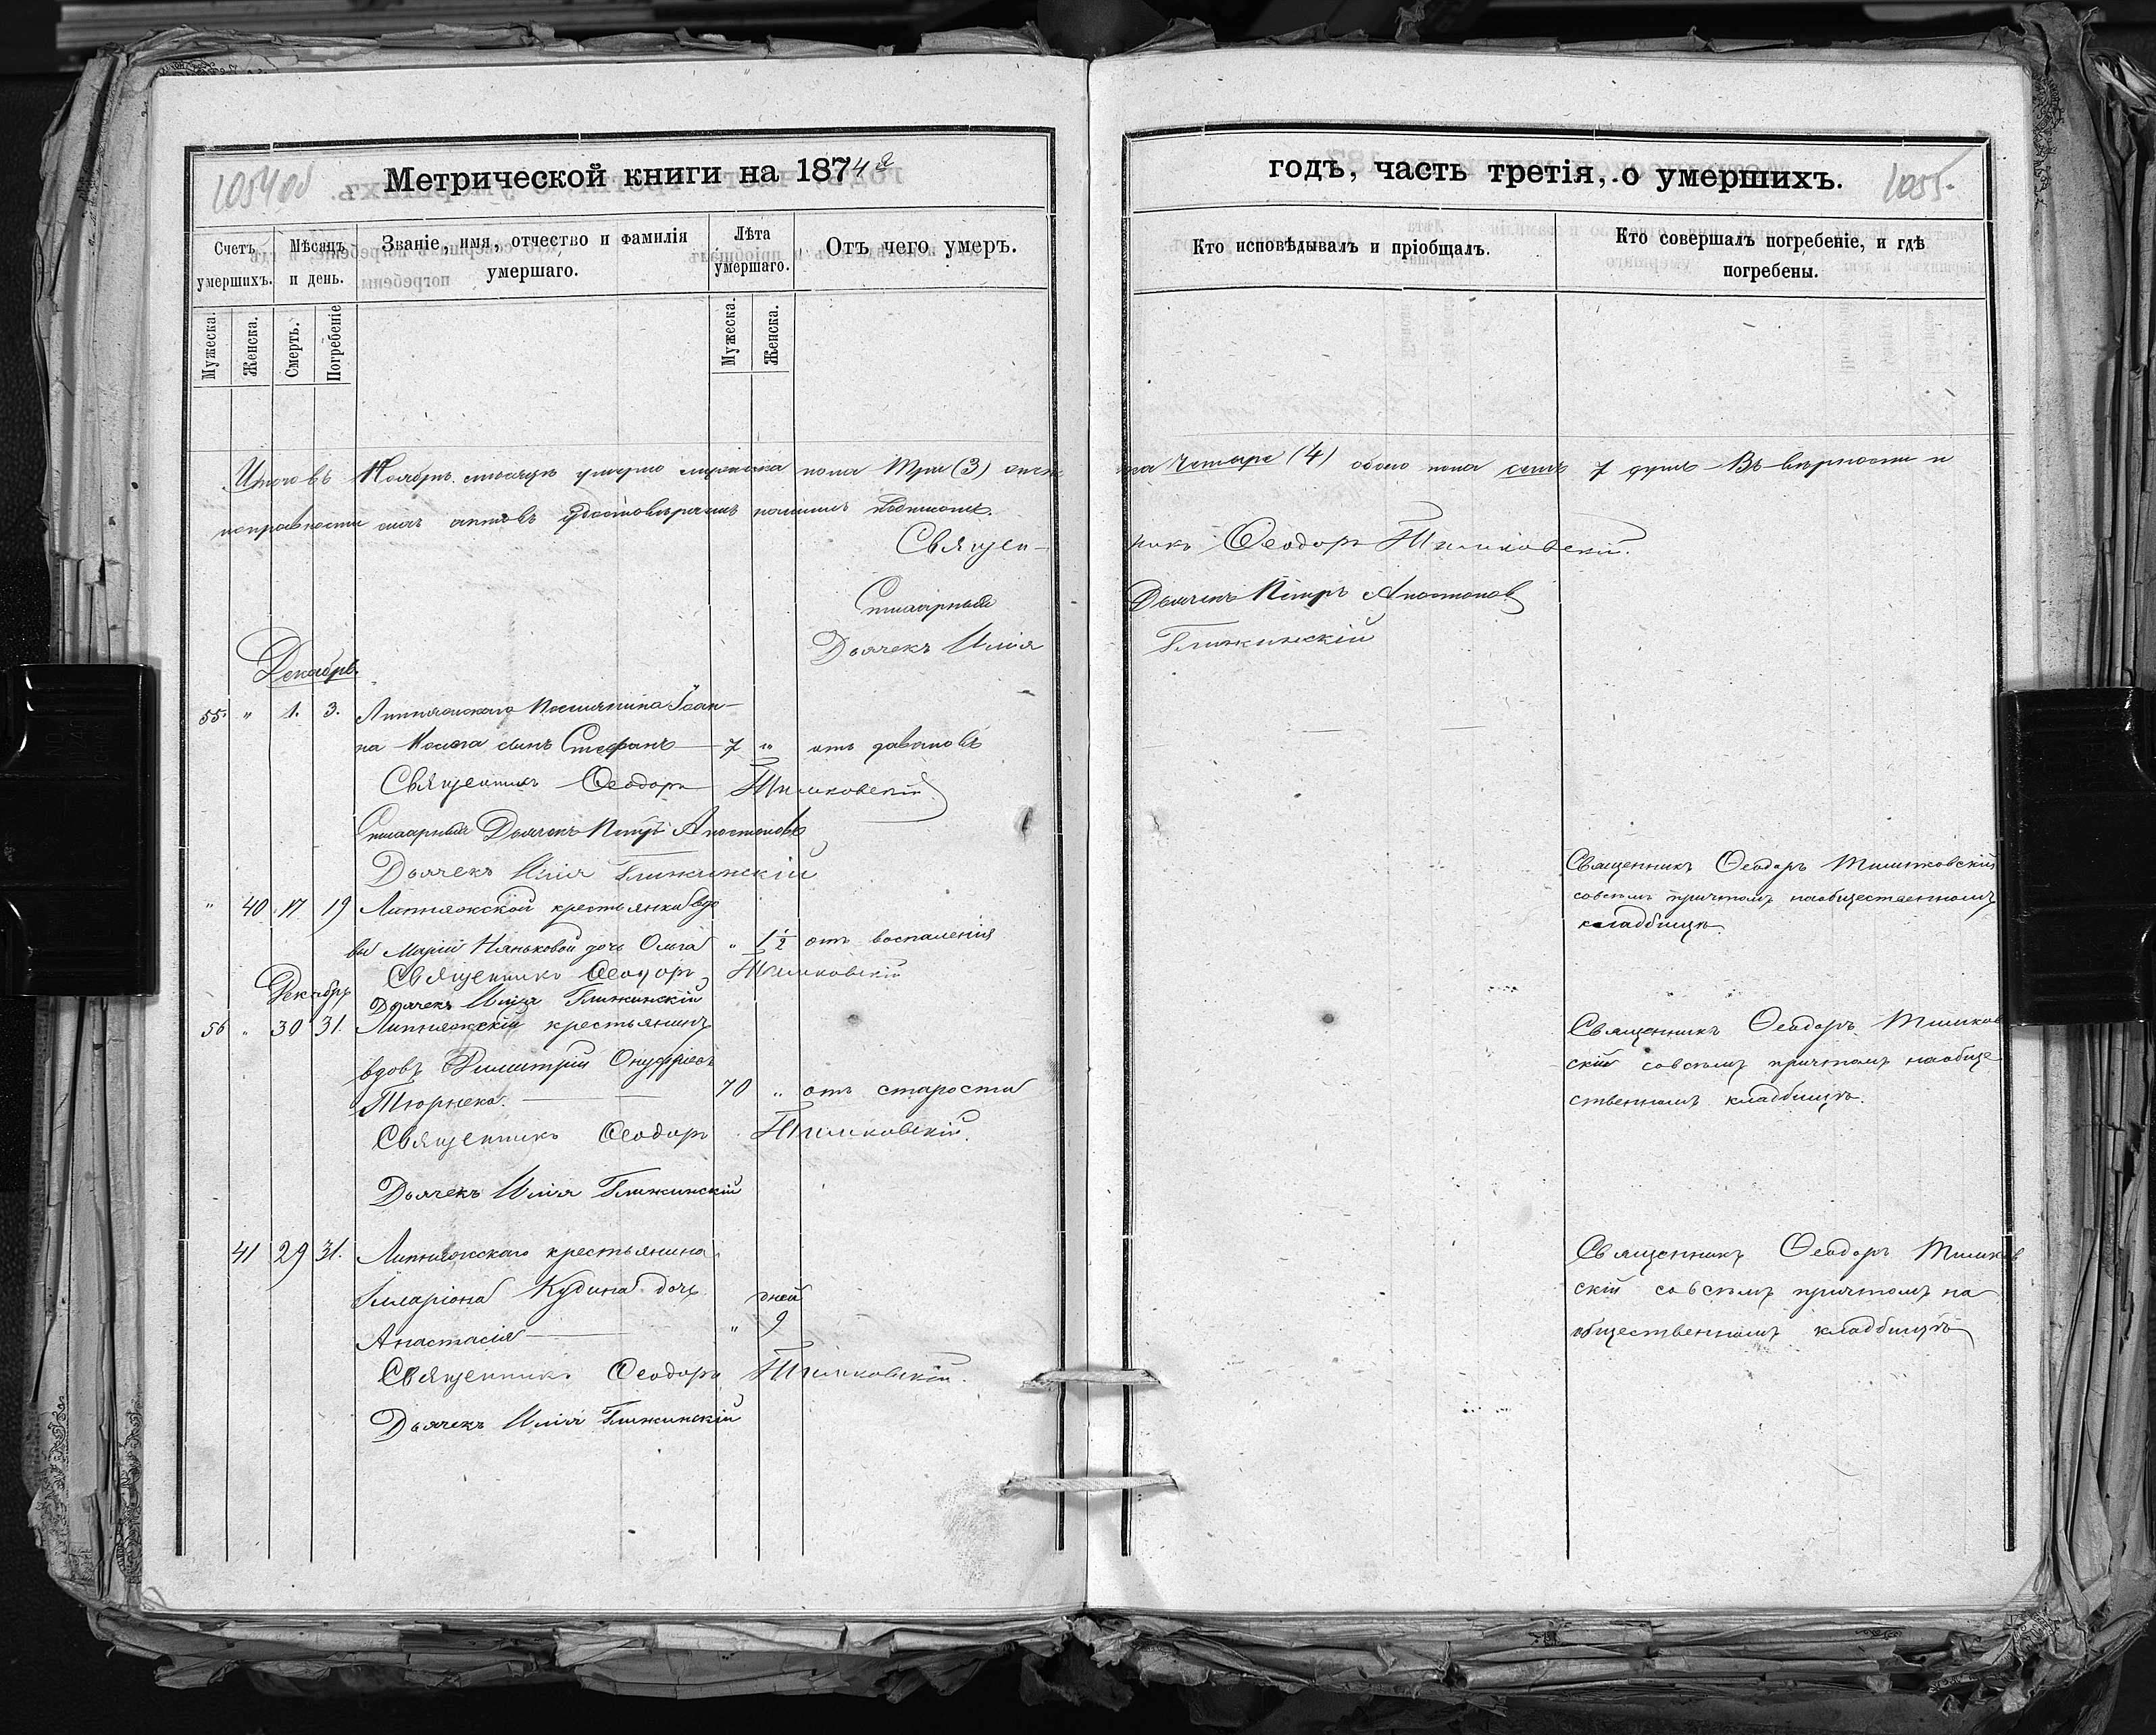 1054об
Метрической книги на 1874й
годъ, часть третія, о умершихъ.
1055.
Счетъ умершихъ.
Мѣсяцъ и день.
Званіе, имя, отчество и фамилія умершаго.
Лѣта умершаго.
Отъ чего умеръ.
Кто исповѣдывалъ и пріобщалъ.
Кто совершалъ погребеніе, и гдѣ погребены.
Мужеска.
Женска.
Смерть.
Погребеніе
Мужеска.
Женска.
Итого въ Ноябрѣ мѣсяцѣ умерло мужеска пола Три (3) женска Четыре (4) обоего пола семь 7 душъ Въ вѣрности и
исправности сихъ актовъ удостовѣряемъ нашимъ подписомъ.
Священникъ Ѳеодоръ Тимиковскій.
Дьячекъ Петръ Апостолов
Дьячекъ Илія Глижинскій
Декабрь
55. " 1. 3. Липняжскаго Іоан-
на сынъ Стефанъ — 7 "
Священникъ Ѳеодоръ Тимиковскій
Дьячекъ Петръ Апостоловъ
Дьячекъ Илія Глижинскій
" 40 17 19 Липняжской крестьянки вдо
вы Маріи Няньковой дочь Ольга " 1½ отъ воспаленія
Священникъ Ѳеодоръ Тимиковскій
Декабрь
Дьячекъ Илія Глижинскій
Священникъ Ѳеодоръ Тимиковскій
совсѣмъ причтомъ наобщественномъ
кладбищѣ.
56 " 30 31. Липняжскій крестьянинъ
вдовъ Димитрій Онуфріевъ
Тюрнеко. — 70 " отъ старости
Священникъ Ѳеодоръ Тимиковскій.
Дьячекъ Илія Глижинскій
Священникъ Ѳеодоръ Тимиков
скій совсѣмъ причтомъ наобще
ственномъ кладбищѣ.
41 29 31. Липняжскаго крестьянина
Илларіона Кудина дочь дней
Анастасія — " 9
Священникъ Ѳеодоръ Тимиковскій.
Дьячекъ Илія Глижинскій
Священникъ Ѳеодоръ Тимиков
скій совсѣмъ причтомъ на
общественномъ кладбищѣ